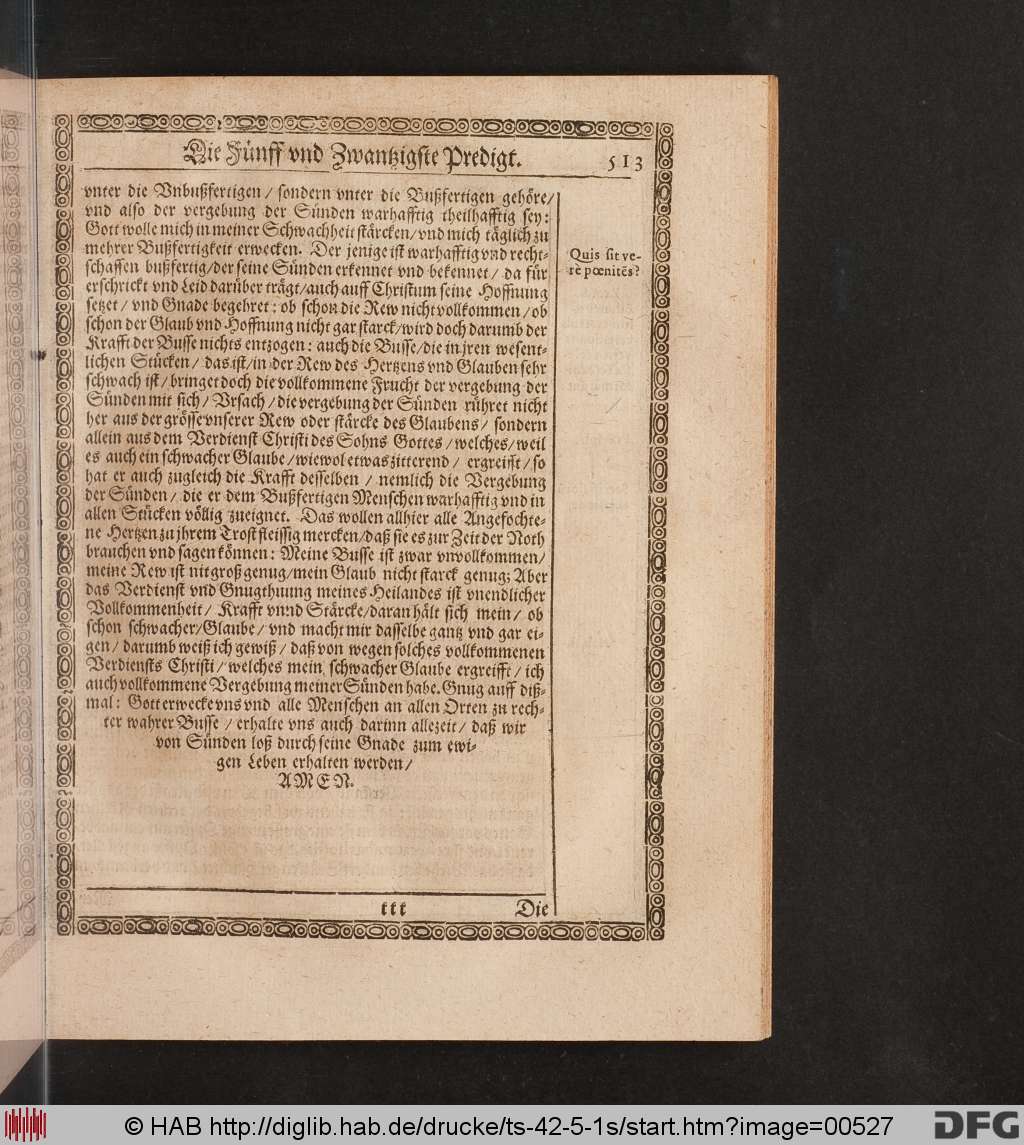 Die Fünff vnd Zwantzigste Predigt. 513
vnter die Vnbußfertigen / sondern vnter die Bußfertigen gehöre/
vnd also der vergebung der Sünden warhafftig theilhafftig sey:
Gott wolle mich in meiner Schwachheit stärcken/ vnd mich täglich zu
mehrer Bußfertigkeit erwecken. Der jenige ist warhafftig vnd recht-
schaffen bußfertig/ der seine Sünden erkennet vnd bekennet / da für
erschrickt vnd Leid darüber trägt/ auch auff Christum seine Hoffnung
setzet / vnd Gnade begehret: ob schon die Rew nicht vollkommen / ob
schon der Glaub vnd Hoffnung nicht gar starck/ wird doch darumb der
Krafft der Busse nichts entzogen: auch die Busse/ die in jren wesent-
lichen Stücken / das ist/ in der Rew des Hertzens vnd Glauben sehr
schwach ist / bringet doch die vollkommene Frucht der vergebung der
Sünden mit sich/ Vrsach / die vergebung der Sünden rühret nicht
her aus der grösse vnserer Rew oder stärcke des Glaubens/ sondern
allein aus dem Verdienst Christi des Sohns Gottes / welches/ weil
es auch ein schwacher Glaube / wiewol etwas zitterend / ergreifft / so
hat er auch zugleich die Krafft desselben / nemlich die Vergebung
der Sünden / die er dem Bußfertigen Menschen warhafftig vnd in
allen Stücken völlig zueignet. Das wollen allhier alle Angefochte-
ne Hertzen zu jhrem Trost fleissig mercken/ daß sie es zur Zeit der Noth
brauchen vnd sagen können: Meine Busse ist zwar vnvollkommen/
meine Rew ist nit groß genug/ mein Glaub nicht starck genug; Aber
das Verdienst vnd Gnugthuung meines Heilandes ist vnendlicher
Vollkommenheit / Krafft vnnd Stärcke/ daran hält sich mein / ob
schon schwacher/ Glaube / vnd macht mir dasselbe gantz vnd gar ei-
gen / darumb weiß ich gewiß / daß von wegen solches vollkommenen
Verdiensts Christi / welches mein schwacher Glaube ergreifft / ich
auch vollkommene Vergebung meiner Sünden habe. Gnug auff diß-
mal: Gott erwecke vns vnd alle Menschen an allen Orten zu rech-
ter wahrer Busse / erhalte vns auch darinn allezeit / daß wir
von Sünden loß durch seine Gnade zum ewi-
gen Leben erhalten werden /
AMEN.
Quis sit ve-
rè pœnitēs?
ttt Die
© HAB http://diglib.hab.de/drucke/ts-42-5-1s/start.htm?image=00527
DFG